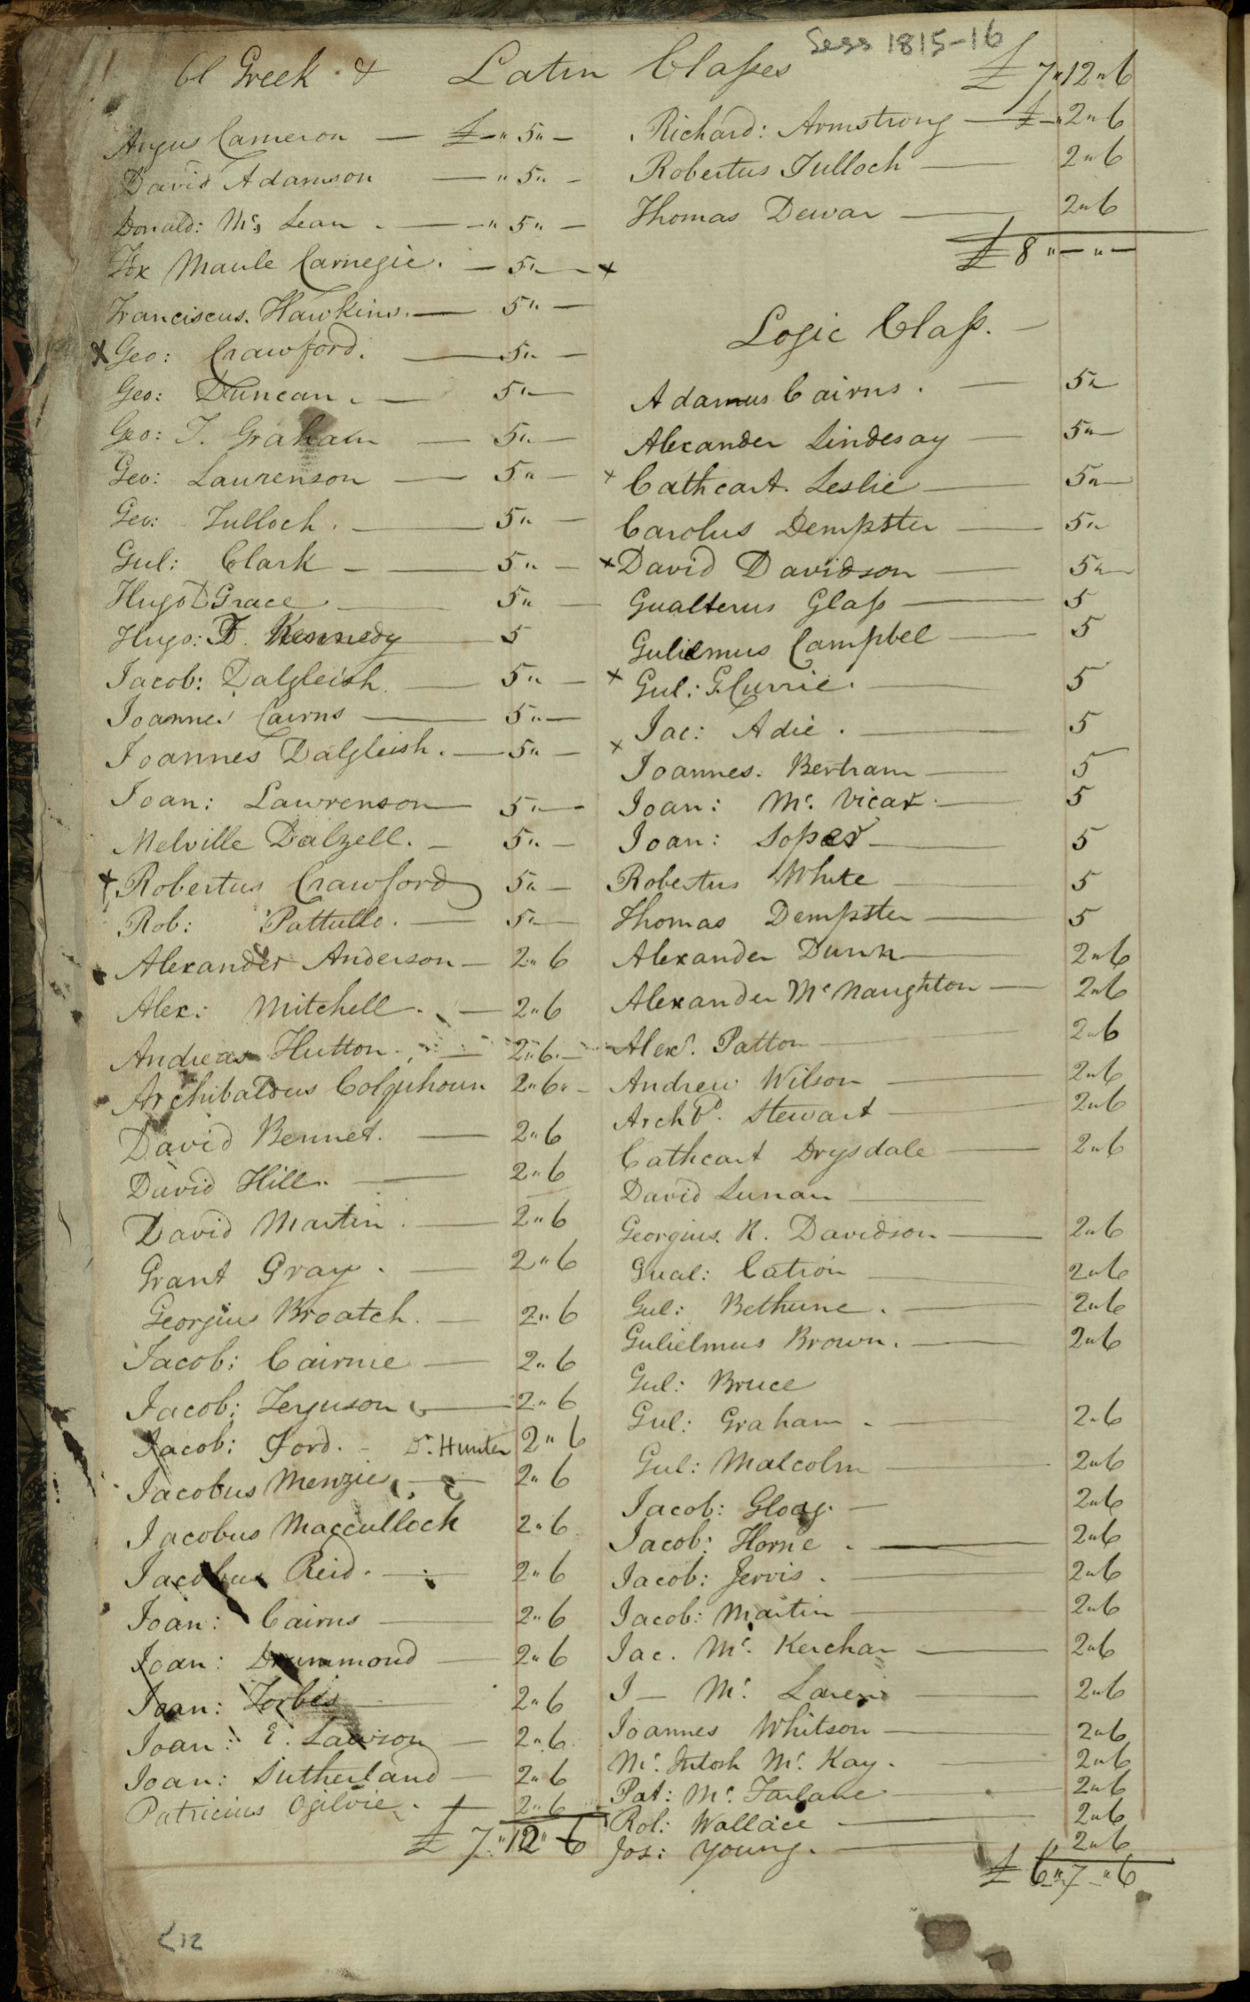 Sess 1815-16
61 Greek & Latin Classes
Angus Cameron — £ — " 5 " —
David Adamson — " 5 " —
Donald: Mc Lean . — — " 5 " —
Fox Maule Carnegie . — 5 " — x
Franciscus. Hawkins. — 5 " —
x Geo: Crawford. — 5 " —
Geo: Duncan. — 5 " —
Geo: T. Graham — 5 " —
Geo: Laurenson — 5 " —
Geo: Tulloch . — 5 " —
Gul: Clark — 5 " —
Hugo D Grace — 5 " —
Hugo: F. Kennedy — 5
Jacob: Dalgleish — 5 " —
Joannes Cairns — 5 " —
Joannes Dalgleish. — 5 " —
Joan: Lawrenson — 5 " —
Melville Dalzell. — 5 " —
x Robertus Crawford 5 " —
Rob: Pattullo. — 5 " —
Alexander Anderson — 2 " 6
Alex: Mitchell. — 2 " 6
Andreas Hutton . — 2 " 6 . —
Archibaldus Colquhoun 2 " 6 " —
David Bennet. — 2 " 6
David Hill. — 2 " 6
David Martin . — 2 " 6
Grant Gray . — 2 " 6
Georgius Broatch. — 2 " 6
Jacob: Cairnie — 2 " 6
Jacob: Ferguson — 2 " 6
Jacob: Ford. - Dr. Hunter 2 " 6
Jacobus Menzies — 2 " 6
Jacobus Macculloch 2 " 6
Jacobus Reid. — 2 " 6
Joan: Cairns — 2 " 6
Joan: Drummond — 2 " 6
Joan: Forbes — 2 " 6
Joan: E. Lawson — 2 " 6
Joan: Sutherland — 2 " 6
Patricius Ogilvie . — 2 " 6
£ 7 " 12 " 6
£ 7 " 12 " 6
Richard: Armstrong — £ — " 2 " 6
Robertus Tulloch — 2 " 6
Thomas Dewar — 2 " 6
£ 8 " — " —
Logic Class. —
Adamus Cairns . — 5 " —
Alexander Lindesay — 5 " —
x Cathcart. Leslie — 5 " —
Carolus Dempster — 5 " —
x David Davidson — 5 " —
Gualterus Glass — 5
Gulielmus Campbel — 5
x Gul: G. Currie . — 5
Jac: Adie . — 5
x Joannes. Bertram — 5
Joan: Mc. Vicar . — 5
Joan: Soper — 5
Robertus White — 5
Thomas Dempster — 5
Alexander Dunn — 2 " 6
Alexander Mc Naughton — 2 " 6
Alexr. Patton — 2 " 6
Andrew Wilson — 2 " 6
Archbd. Stewart — 2 " 6
Cathcart Drysdale — 2 " 6
David Lunan —
Georgius. K. Davidson — 2 " 6
Gual: Cation — 2 " 6
Gul: Bethune . — 2 " 6
Gulielmus Brown. — 2 " 6
Gul: Bruce
Gul: Graham . — 2 " 6
Gul: Malcolm — 2 " 6
Jacob: Gloag. — 2 " 6
Jacob: Horne . — 2 " 6
Jacob: Jervis . — 2 " 6
Jacob: Martin — 2 " 6
Jac. Mc. Kerchar — 2 " 6
J — Mc. Laren — 2 " 6
Joannes Whitson — 2 " 6
Mc. Intosh Mc. Kay . — 2 " 6
Pat: Mc. Farlane — 2 " 6
Rob: Wallace — 2 " 6
Jos: Young . — 2 " 6
£ 6 " 7 " 6
<12